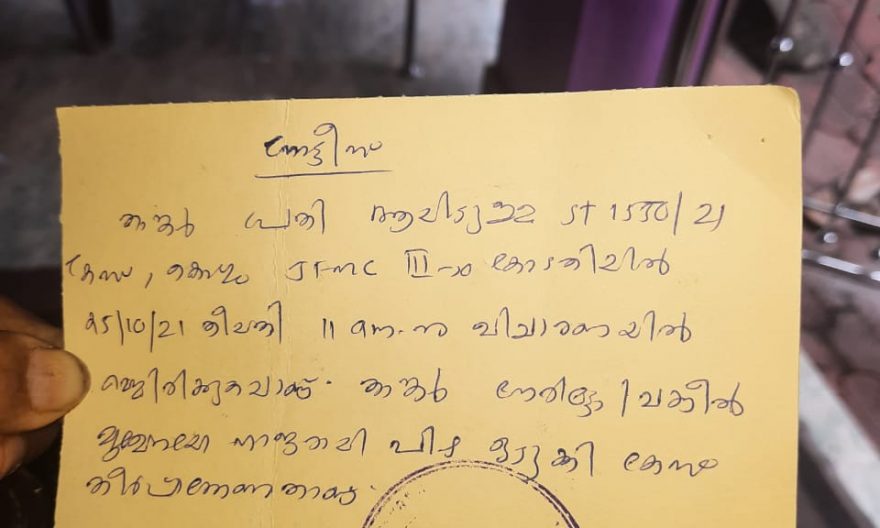 നോട്ടീസ്
താങ്കൾ പ്രതി ആയിട്ടുള്ള ST 1550/21
കേസ്, കൊല്ലം JFMC III-ാം കോടതിയിൽ
25/10/21 തീയതി 11 മണിക്ക് വിചാരണയിൽ
ഇരിക്കുകയാണ്. താങ്കൾ നേരിട്ടോ / വക്കീൽ
മുഖേനയോ ഹാജരായി പിഴ ഒടുക്കി കേസ്
തീർപ്പാക്കേണ്ടതാണ്.